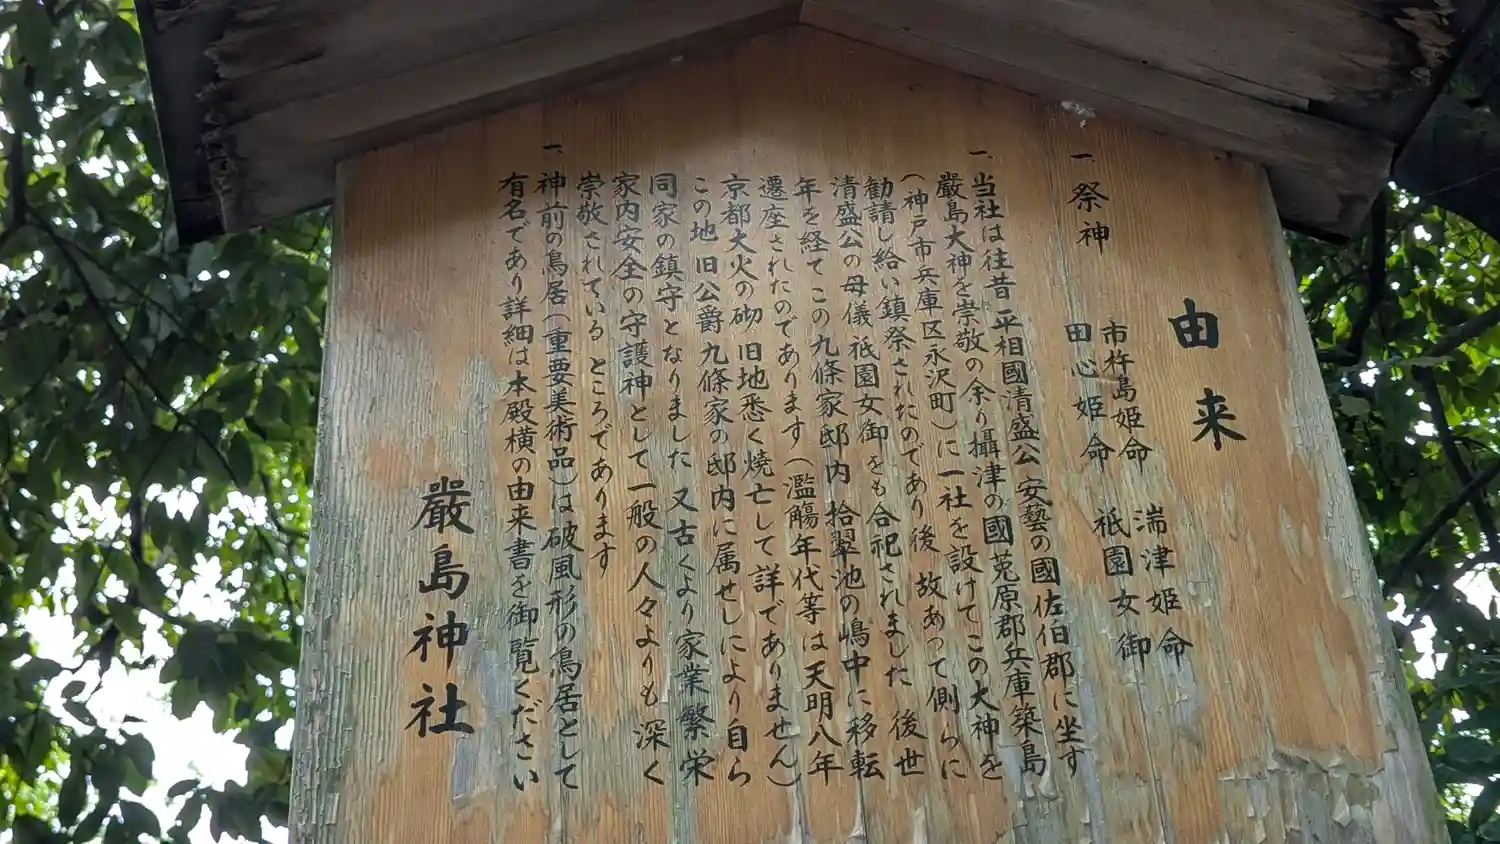 由来
一、祭神
市杵島姫命 湍津姫命
田心姫命 祇園女御
一、当社は往昔 平相國清盛公 安藝の國佐伯郡に坐す
嚴島大神を崇敬の余り攝津の國 菟原郡兵庫築島
(神戸市兵庫区永沢町)に一社を設けてこの大神を
勧請し給い鎮祭されたのであり後 故あって側らに
清盛公の母儀祇園女御をも合祀されました 後世
年を経てこの九條家邸内 拾翠池の嶋中に移転
遷座されたのであります(濫觴年代等は天明八年
京都大火の砌 旧地悉く焼亡して詳でありません)
この地旧公爵九條家の邸内に属せしにより自ら
同家の鎮守となりました 又古くより家業繁栄
家内安全の守護神として一般の人々よりも深く
崇敬されている ところであります
一、神前の鳥居(重要美術品)は破風形の鳥居として
有名であり詳細は本殿横の由来書を御覧ください
嚴島神社